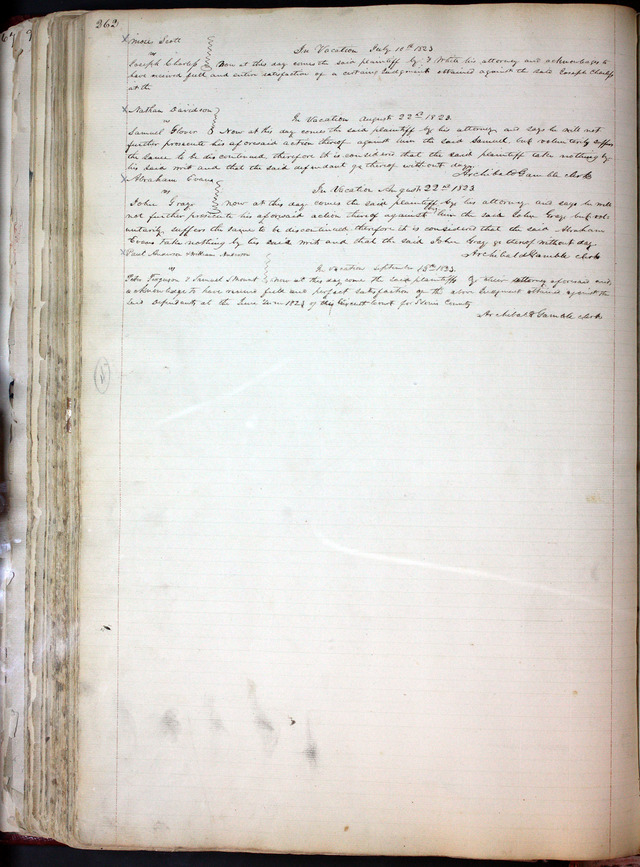 262
Moses Scott
vs
In Vacation July 10th 1823
Joseph Charless Now at this day comes the said plaintiff by J White his attorney and acknowledges to
have received full and entire satisfaction of a certain Judgment obtained against the said Joseph Charless
at the
Nathan Davidson
vs
In Vacation August 22nd 1823
Samuel Glover Now at this day comes the said plaintiff by his attorney and says he will not
further prosecute his aforesaid action thereof against him the said Samuel but voluntarily suffers
the same to be discontinued therefore it is considered that the said plaintiff take nothing by
his said writ and that the said defendant go thereof without day
Archibald Gamble clerk
Abraham Evans
vs
In Vacation August 22nd 1823
John Gray now at this day comes the said plaintiff by his attorney and says he will
not further prosecute his aforesaid action thereof against him the said John Gray but vol-
untarily suffers the same to be discontinued therefore it is considered that the said Abraham
Evans take nothing by his said writ and that the said John Gray go thereof without day
Archibald Gamble clerk
Paul Anderson & William Anderson
vs
In vacation September 15th 1823
John Ferguson & Samuel S now at this day come the said plaintiffs by their attorney aforesaid and
acknowledge to have received full and perfect satisfaction of the above Judgment obtained against the
said Defendants at the June Term 1823 of the Circuit Court for St Louis County
Archibald Gamble clerk